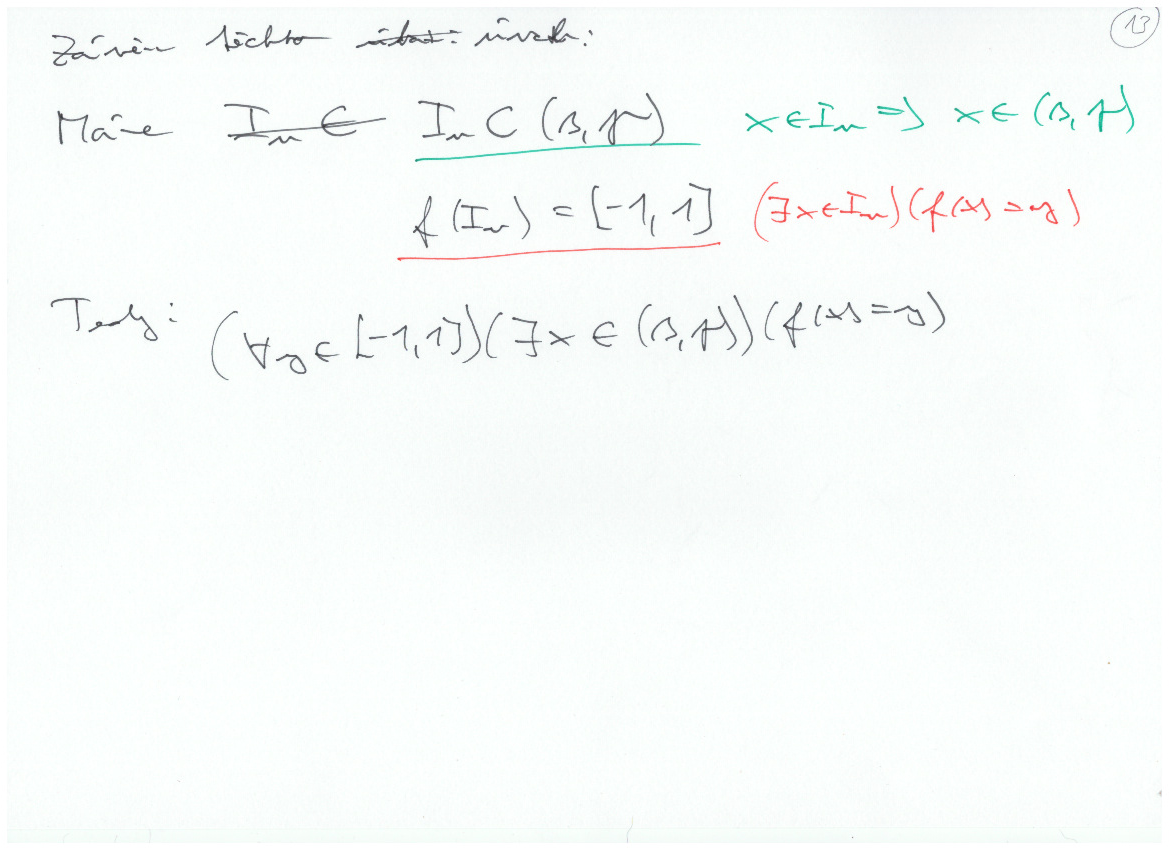 13
Závěr těchto úvah:
Máme I_n ∈ I_n ⊂ (β, γ) x ∈ I_n ⇒ x ∈ (β, γ)
f(I_n) = [-1, 1] (∃x ∈ I_n)(f(x) = y)
Tedy: (∀y ∈ [-1, 1])(∃x ∈ (β, γ))(f(x) = y)